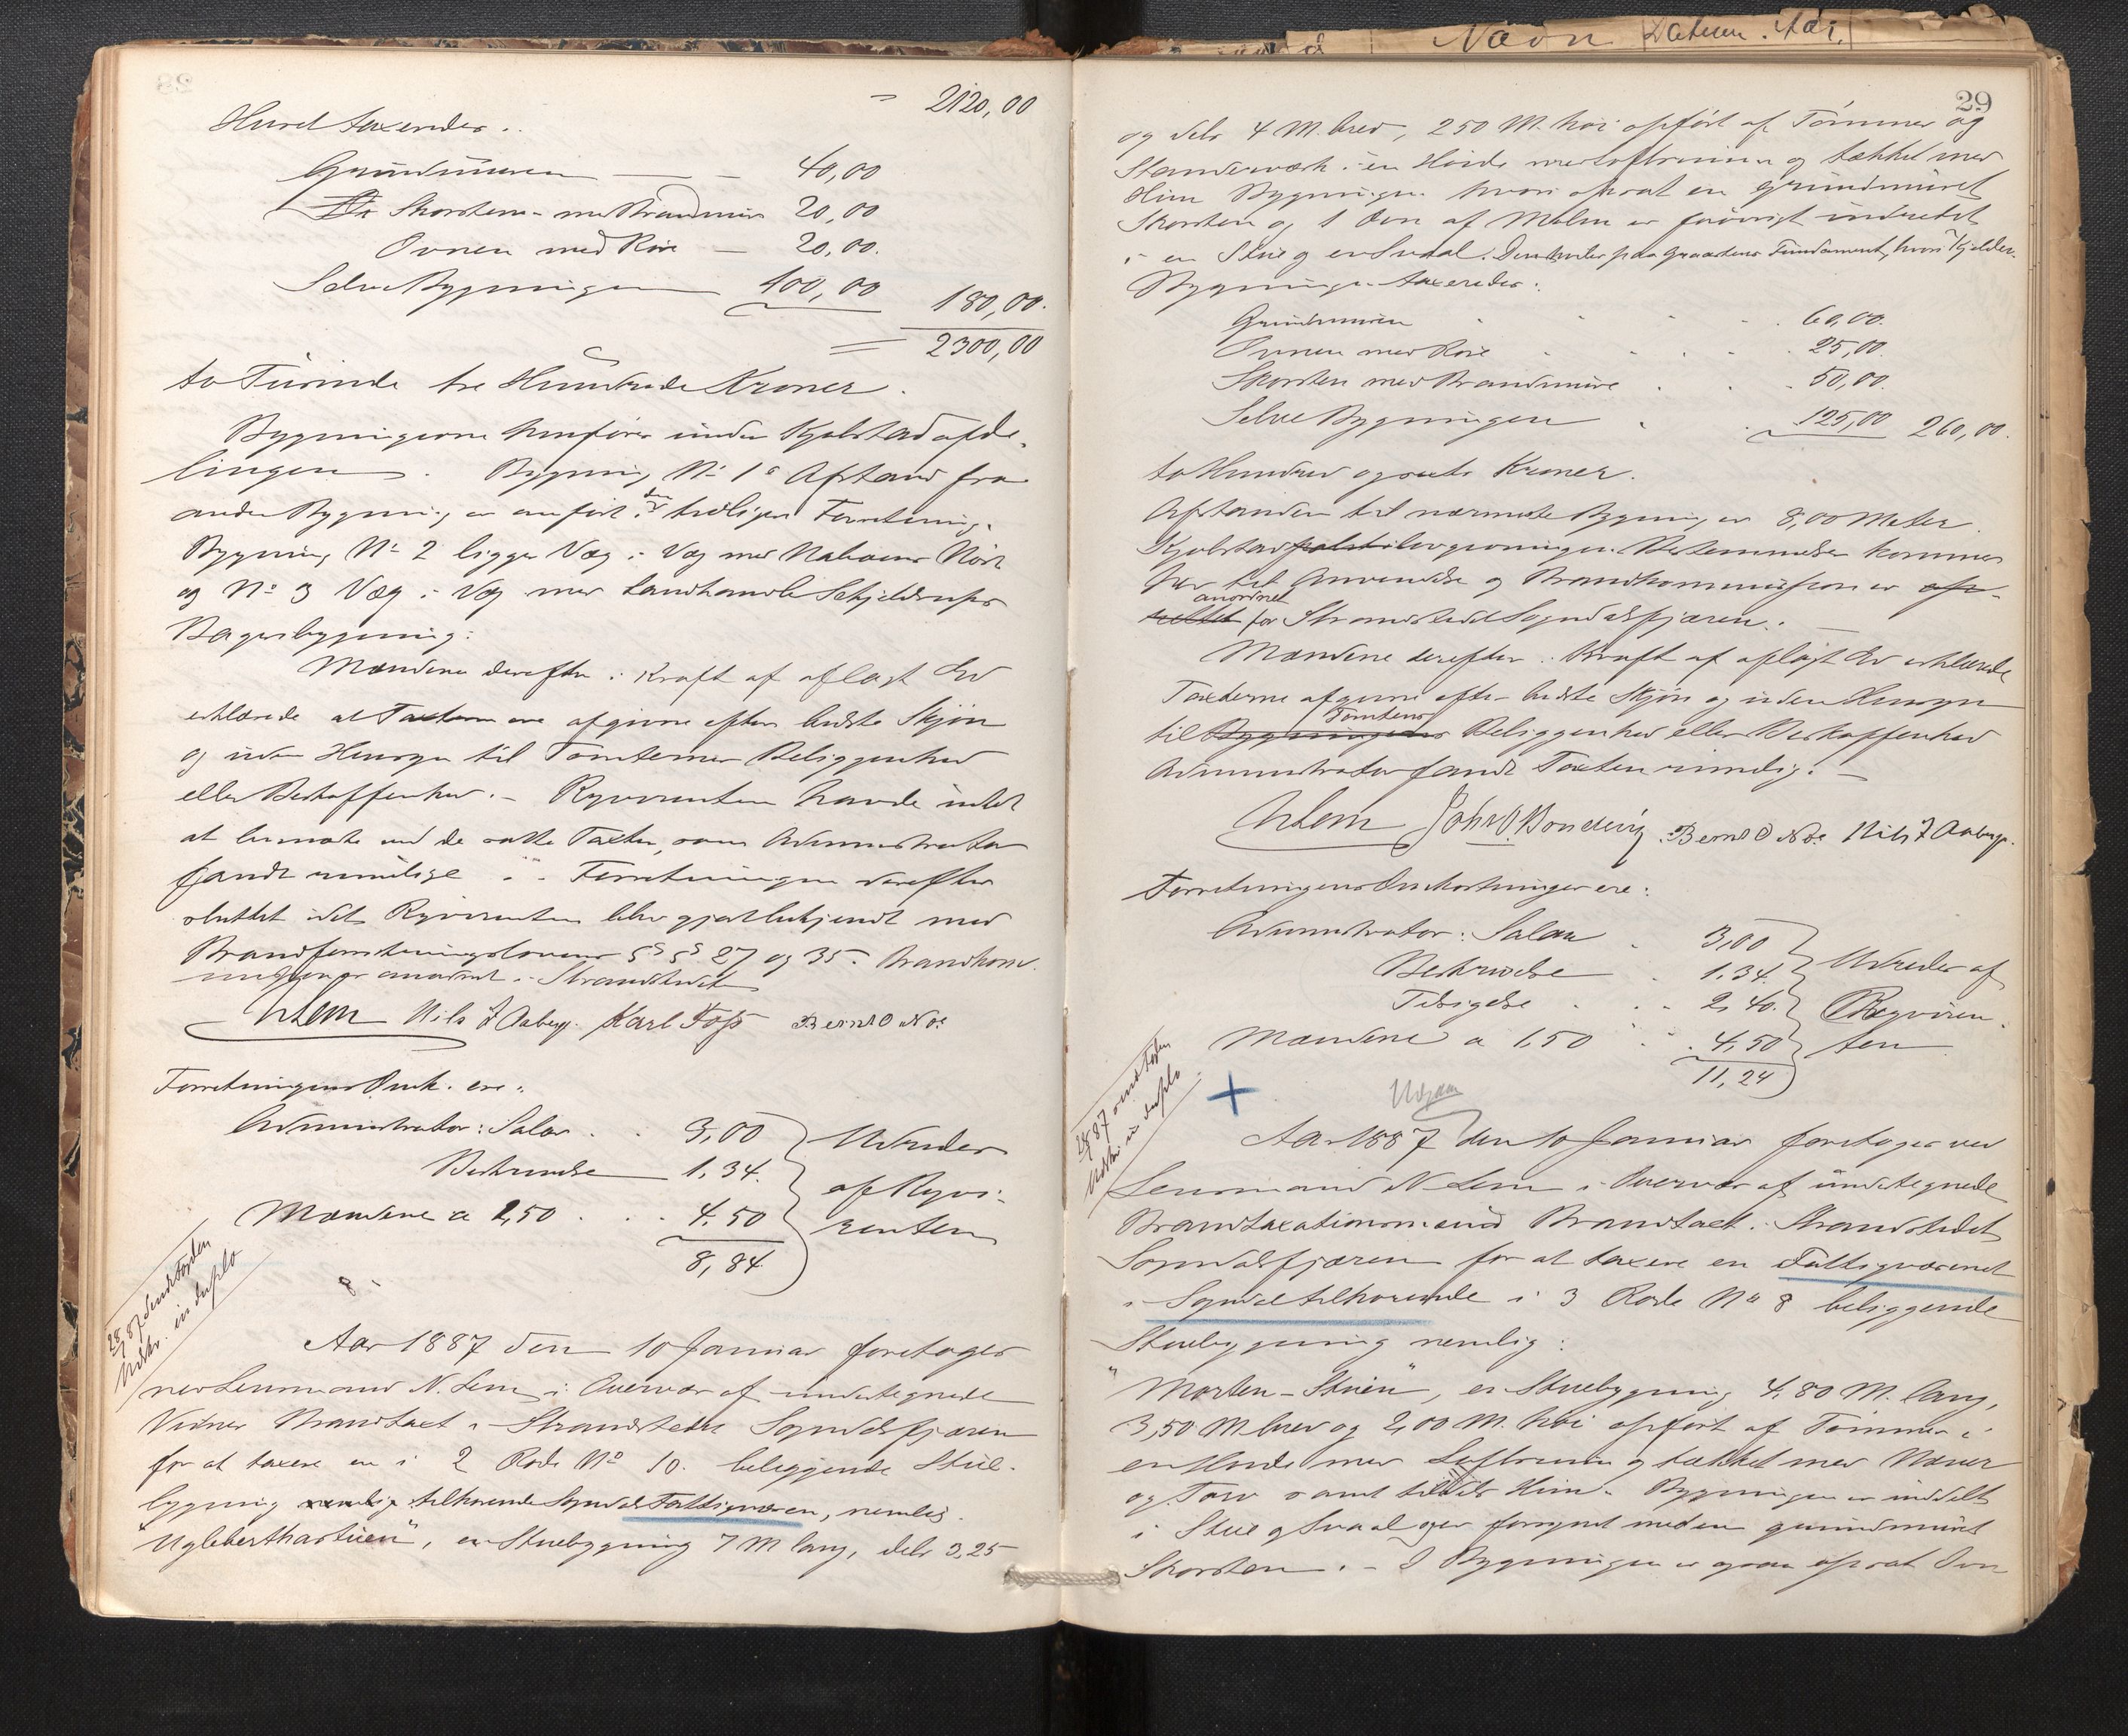 = 2120,00
Huset taxeredes:
Grundmuren — - 40,00
Skorsten med Brandmur 20,00
Ovnen med Rør — 20,00.
Selve Bygningen 100,00 180,00.
= 2300,00
to Tusinde tre Hundrede Kroner.
Bygningerne henføres under Kjøbstadafde-
lingen. Bygning No 1s Afstand fra
anden Bygning er anført i den tidligere Forretning.
Bygning No 2 ligger Væg i Væg med Naboens Nøst
og No 3 Væg i Væg med Landhandler Schjeldrups
Bagerbygning:
Mændene derefter i Kraft af aflagt Ed
erklærede at Taxterne ere afgivne efter bedste Skjøn
og uden Hensyn til Tomternes Beliggenhed
eller Beskaffenhed. - Rqvirenten havde intet
at bemærke ved de satte Taxter, som Administrator
fandt rimelige. - Forretningen derefter
sluttet idet Rqvirenten blev gjort bekjendt med
Brandforsikringslovens §§ 27 og 35. Brandkom-
mission er anordnet i Strandstedet
NLem Nils J Aaberge. Karl Foss Bernt O Noe
Forretningens Omk. ere:
Administrator: Salær . . 3,00
Beskrivelse 1,34.
Mændene a 1,50 . . . 4,50
8,84
Udredes
af Rqvi-
renten
28/1 87 sendt
Udskr. in duplo
8.
Aar 1887 den 10 Januar foretoges
ved Lensmand N. Lem i Overvær af undertegnede
Vidner Brandtaxt i Strandstedet Sogndalsfjæren
for at taxere en i 2 Rode No 10. beliggende Stue-
bygning tilhørende Sogndals Fattigvæsen, nemlig.
"Uglebersthastuen", en Stuebygning 7 M lang, dels 3,25
29
og dels 4 M. bred, 250 M. høi opført af Tømmer og
Standerværk i en Høide med Loftsrum og tækket med
Hun Bygningen hvori opsat en grundmuret
Skorsten og 1 Ovn af Malm er forøvrigt indredet
i en Stue og en Svaal. Den hviler paa Graastens Fundament, hvori Kjelder.
Bygningen taxeredes:
Grundmuren . . . . 60,00.
Ovnen med Rør . . . . 25,00.
Skorsten med Brandmur . . . 50,00.
Selve Bygningen . . 125,00 260,00.
to Hundred og seksti Kroner.
Afstanden til nærmeste Bygning er 8,00 Meter.
Kjøbstad lovgivningens Bestemmelser kommer
her til Anvendelse og Brandkommission er
anordnet for Strandstedet Sogndalsfjæren. —
Mændene derefter i Kraft af aflagt Ed erklærede
Taxterne afgivne efter bedste Skjøn og uden Hensyn
til Bygningens Tomtens Beliggenhed eller Beskaffenhed
Administrator fandt Taxten rimelig. —
NLem John O Bondevig. Bernt O Noe Nils J Aaberge.
Forretningens Omkostninger ere:
Administrator: Salær . 3,00
Beskrivelse . 1,34.
Tilsigelse . . . 2,40.
Mændene a 1,50 . . . 4,50
11,24
Udredes af
Rqviren-
ten
Udskr. in duplo
+
Aar 1887 den 10 Januar foretoges ved
Lensmand N Lem i Overvær af undertegnede
Brandtaxationsmænd Brandtaxt i Strandstedet
Sogndalsfjæren for at taxere en Fattigvæsenet
i Sogndal tilhørende i 3 Rode No 8 beliggende
Stuebygning nemlig:
"Morten-Stuen", en Stuebygning 4,80 M. lang,
3,50 M bred og 2,00 M. høi opført af Tømmer i
en Høide med Loftsrum og tækket med Næver
og Torv samt tildels Hun. Bygningen er inddelt
i Stue og Svaal og er forsynet med en grundmuret
Skorsten. - I Bygningen er ogsaa opsat Ovn
Nævn Datum. Aar.